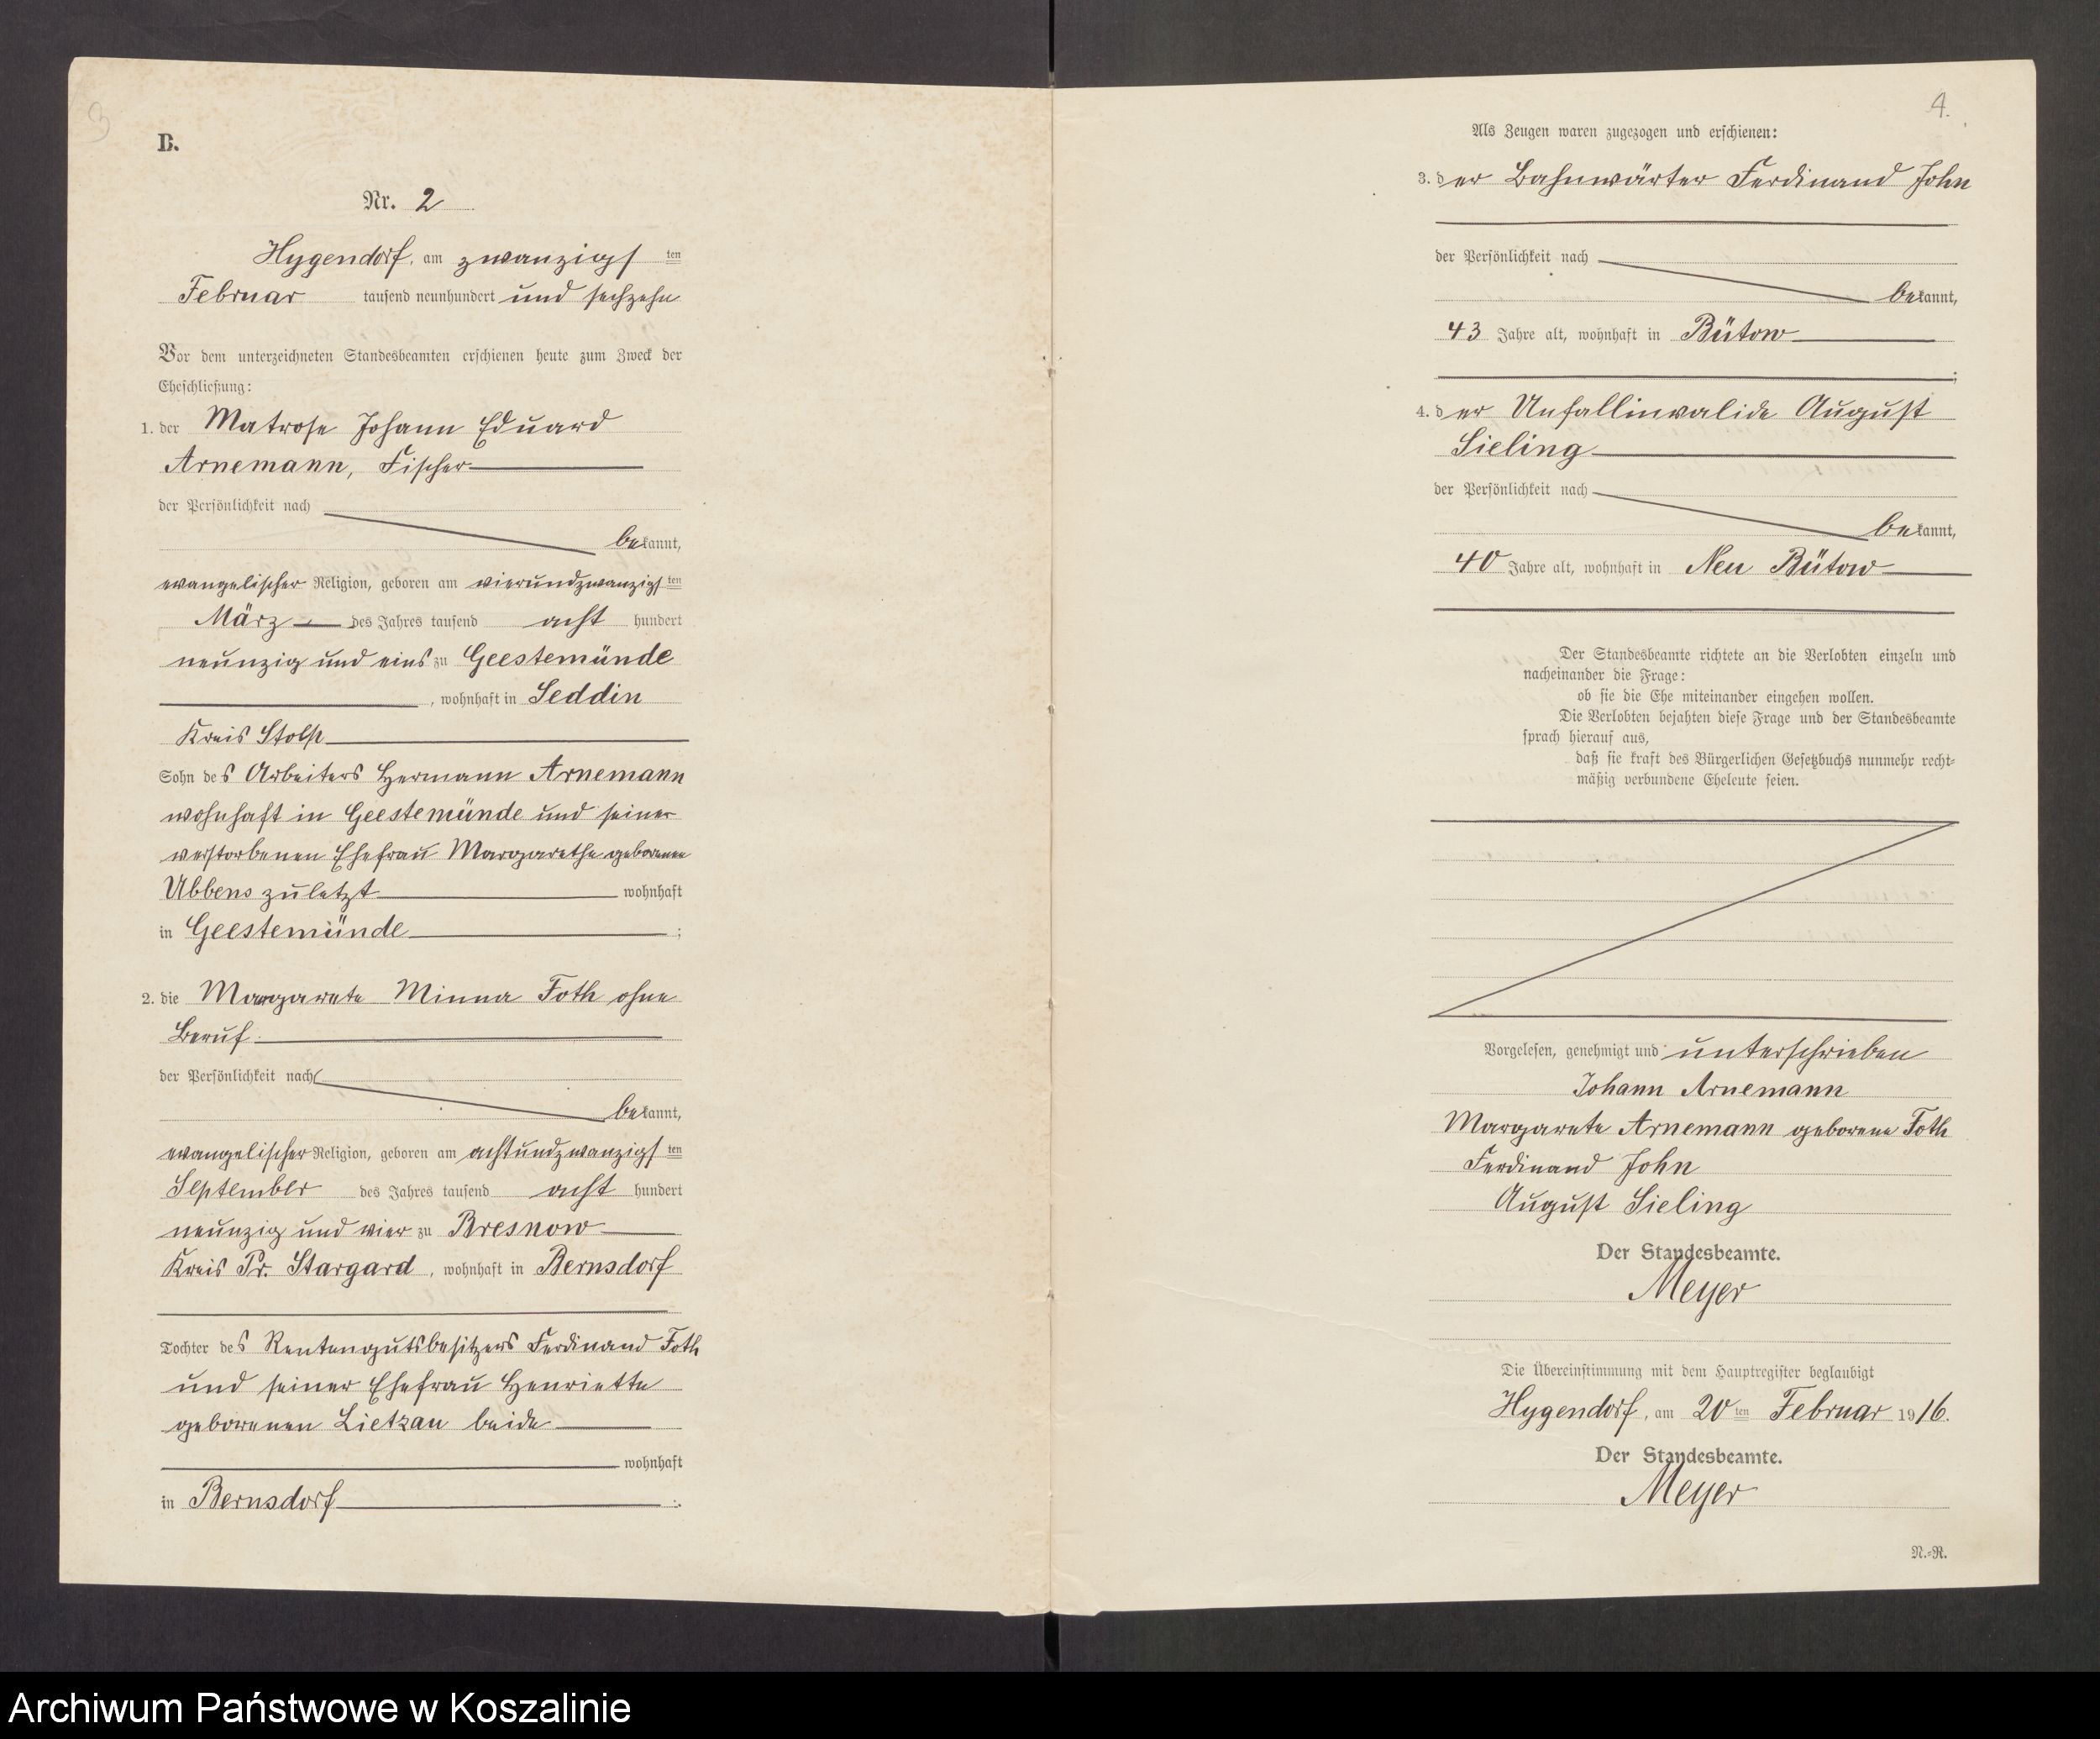 3
B.
Nr. 2
Hygendorf, am zwanzigsten
Februar tausend neunhundert und sechzehn
Vor dem unterzeichneten Standesbeamten erschienen heute zum Zweck der
Eheschließung:
1. der Matrose Johann Eduard
Arnemann, Fischer
der Persönlichkeit nach
bekannt,
evangelischer Religion, geboren am vierundzwanzigsten
März des Jahres tausend acht hundert
neunzig und eins zu Geestemünde
, wohnhaft in Seddin
Kreis Stolp
Sohn des Arbeiters Hermann Arnemann
wohnhaft in Geestemünde und seiner
verstorbenen Ehefrau Margarethe geborenen
Ubbens zuletzt wohnhaft
in Geestemünde ;
2. die Margarete Minna Foth ohne
Beruf
der Persönlichkeit nach
bekannt,
evangelischer Religion, geboren am achtundzwanzigsten
September des Jahres tausend acht hundert
neunzig und vier zu Bresnow
Kreis Pr. Stargard, wohnhaft in Bernsdorf
Tochter des Rentengutsbesitzers Ferdinand Foth
und seiner Ehefrau Henriette
geborenen Lietzau beide
wohnhaft
in Bernsdorf .
4.
Als Zeugen waren zugezogen und erschienen:
3. der Bahnwärter Ferdinand John
der Persönlichkeit nach
bekannt,
43 Jahre alt, wohnhaft in Bütow
;
4. der Unfallinvalide August
Sieling
der Persönlichkeit nach
bekannt,
40 Jahre alt, wohnhaft in Neu Bütow
Der Standesbeamte richtete an die Verlobten einzeln und
nacheinander die Frage:
ob sie die Ehe miteinander eingehen wollen.
Die Verlobten bejahten diese Frage und der Standesbeamte
sprach hierauf aus,
daß sie kraft des Bürgerlichen Gesetzbuchs nunmehr recht-
mäßig verbundene Eheleute seien.
Vorgelesen, genehmigt und unterschrieben
Johann Arnemann
Margarete Arnemann geborene Foth
Ferdinand John
August Sieling
Der Standesbeamte.
Meyer
Die Übereinstimmung mit dem Hauptregister beglaubigt
Hygendorf, am 20ten Februar 1916.
Der Standesbeamte.
Meyer
N.-R.
Archiwum Państwowe w Koszalinie